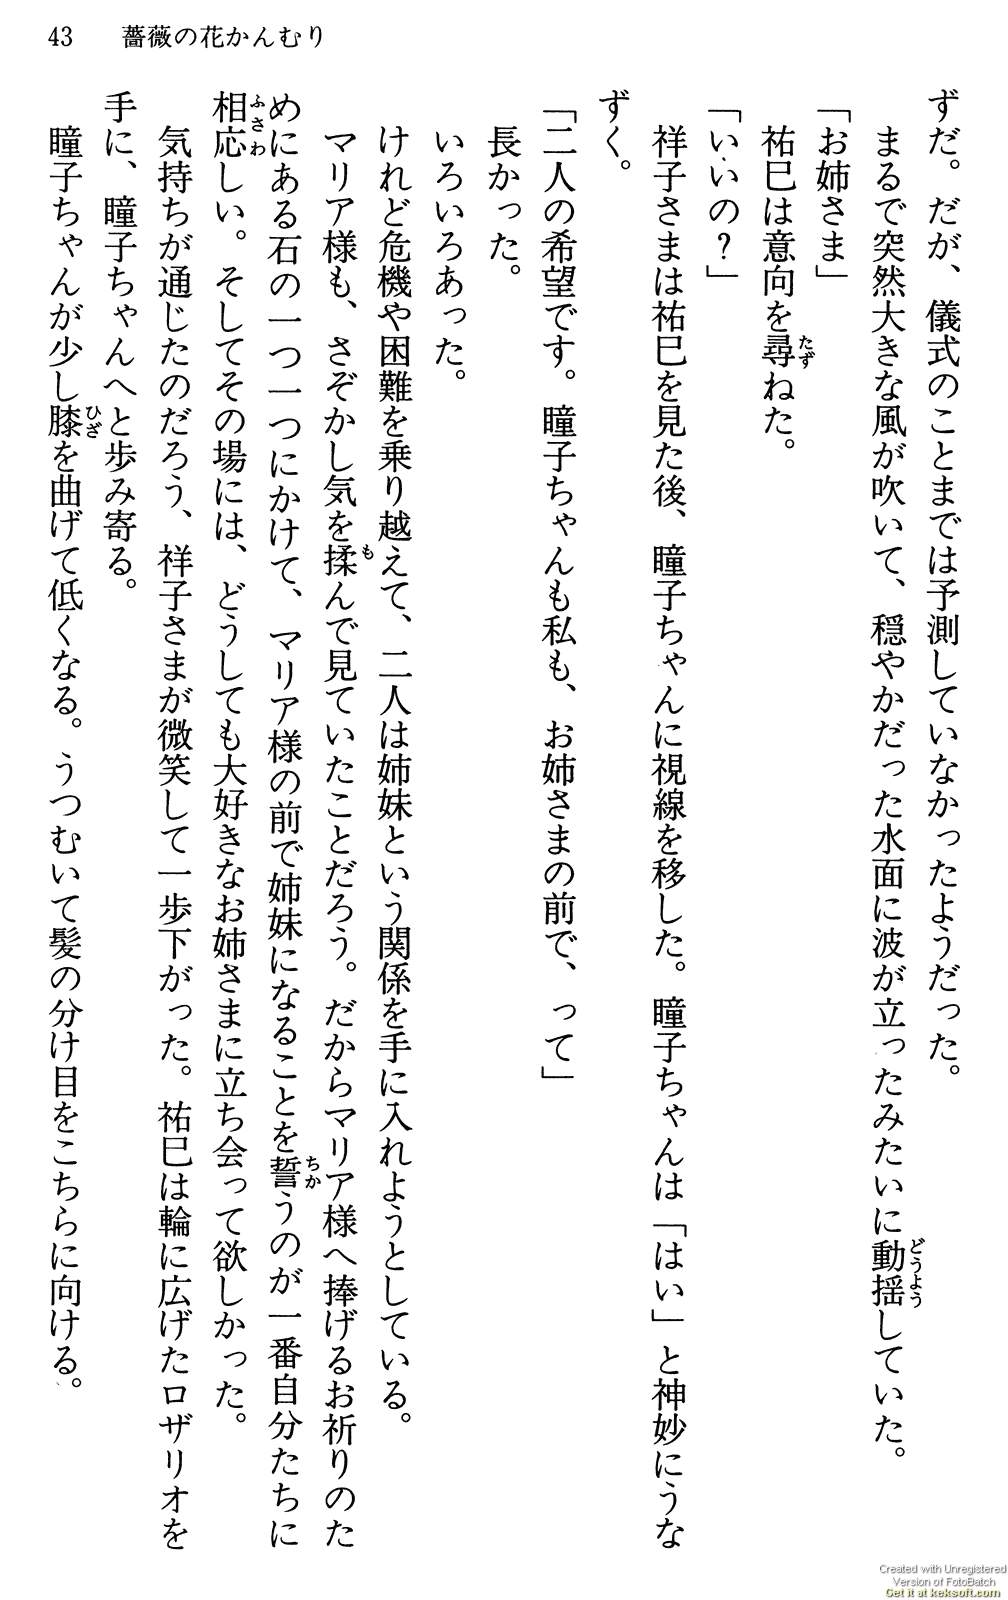 43　薔薇の花かんむり
ずだ。だが、儀式のことまでは予測していなかったようだった。
まるで突然大きな風が吹いて、穏やかだった水面に波が立ったみたいに動揺していた。
どうよう
「お姉さま」
祐巳は意向を尋ねた。
たず
「いいの？」
祥子さまは祐巳を見た後、瞳子ちゃんに視線を移した。瞳子ちゃんは「はい」と神妙にうな
ずく。
「二人の希望です。瞳子ちゃんも私も、お姉さまの前で、って」
長かった。
いろいろあった。
けれど危機や困難を乗り越えて、二人は姉妹という関係を手に入れようとしている。
マリア様も、さぞかし気を揉んで見ていたことだろう。だからマリア様へ捧げるお祈りのた
も
めにある石の一つ一つにかけて、マリア様の前で姉妹になることを誓うのが一番自分たちに
ちか
相応しい。そしてその場には、どうしても大好きなお姉さまに立ち会って欲しかった。
ふさわ
気持ちが通じたのだろう、祥子さまが微笑して一歩下がった。祐巳は輪に広げたロザリオを
手に、瞳子ちゃんへと歩み寄る。
瞳子ちゃんが少し膝を曲げて低くなる。うつむいて髪の分け目をこちらに向ける。
ひざ
Created with Unregistered
Version of FotoBatch
Get it at keksoft.com